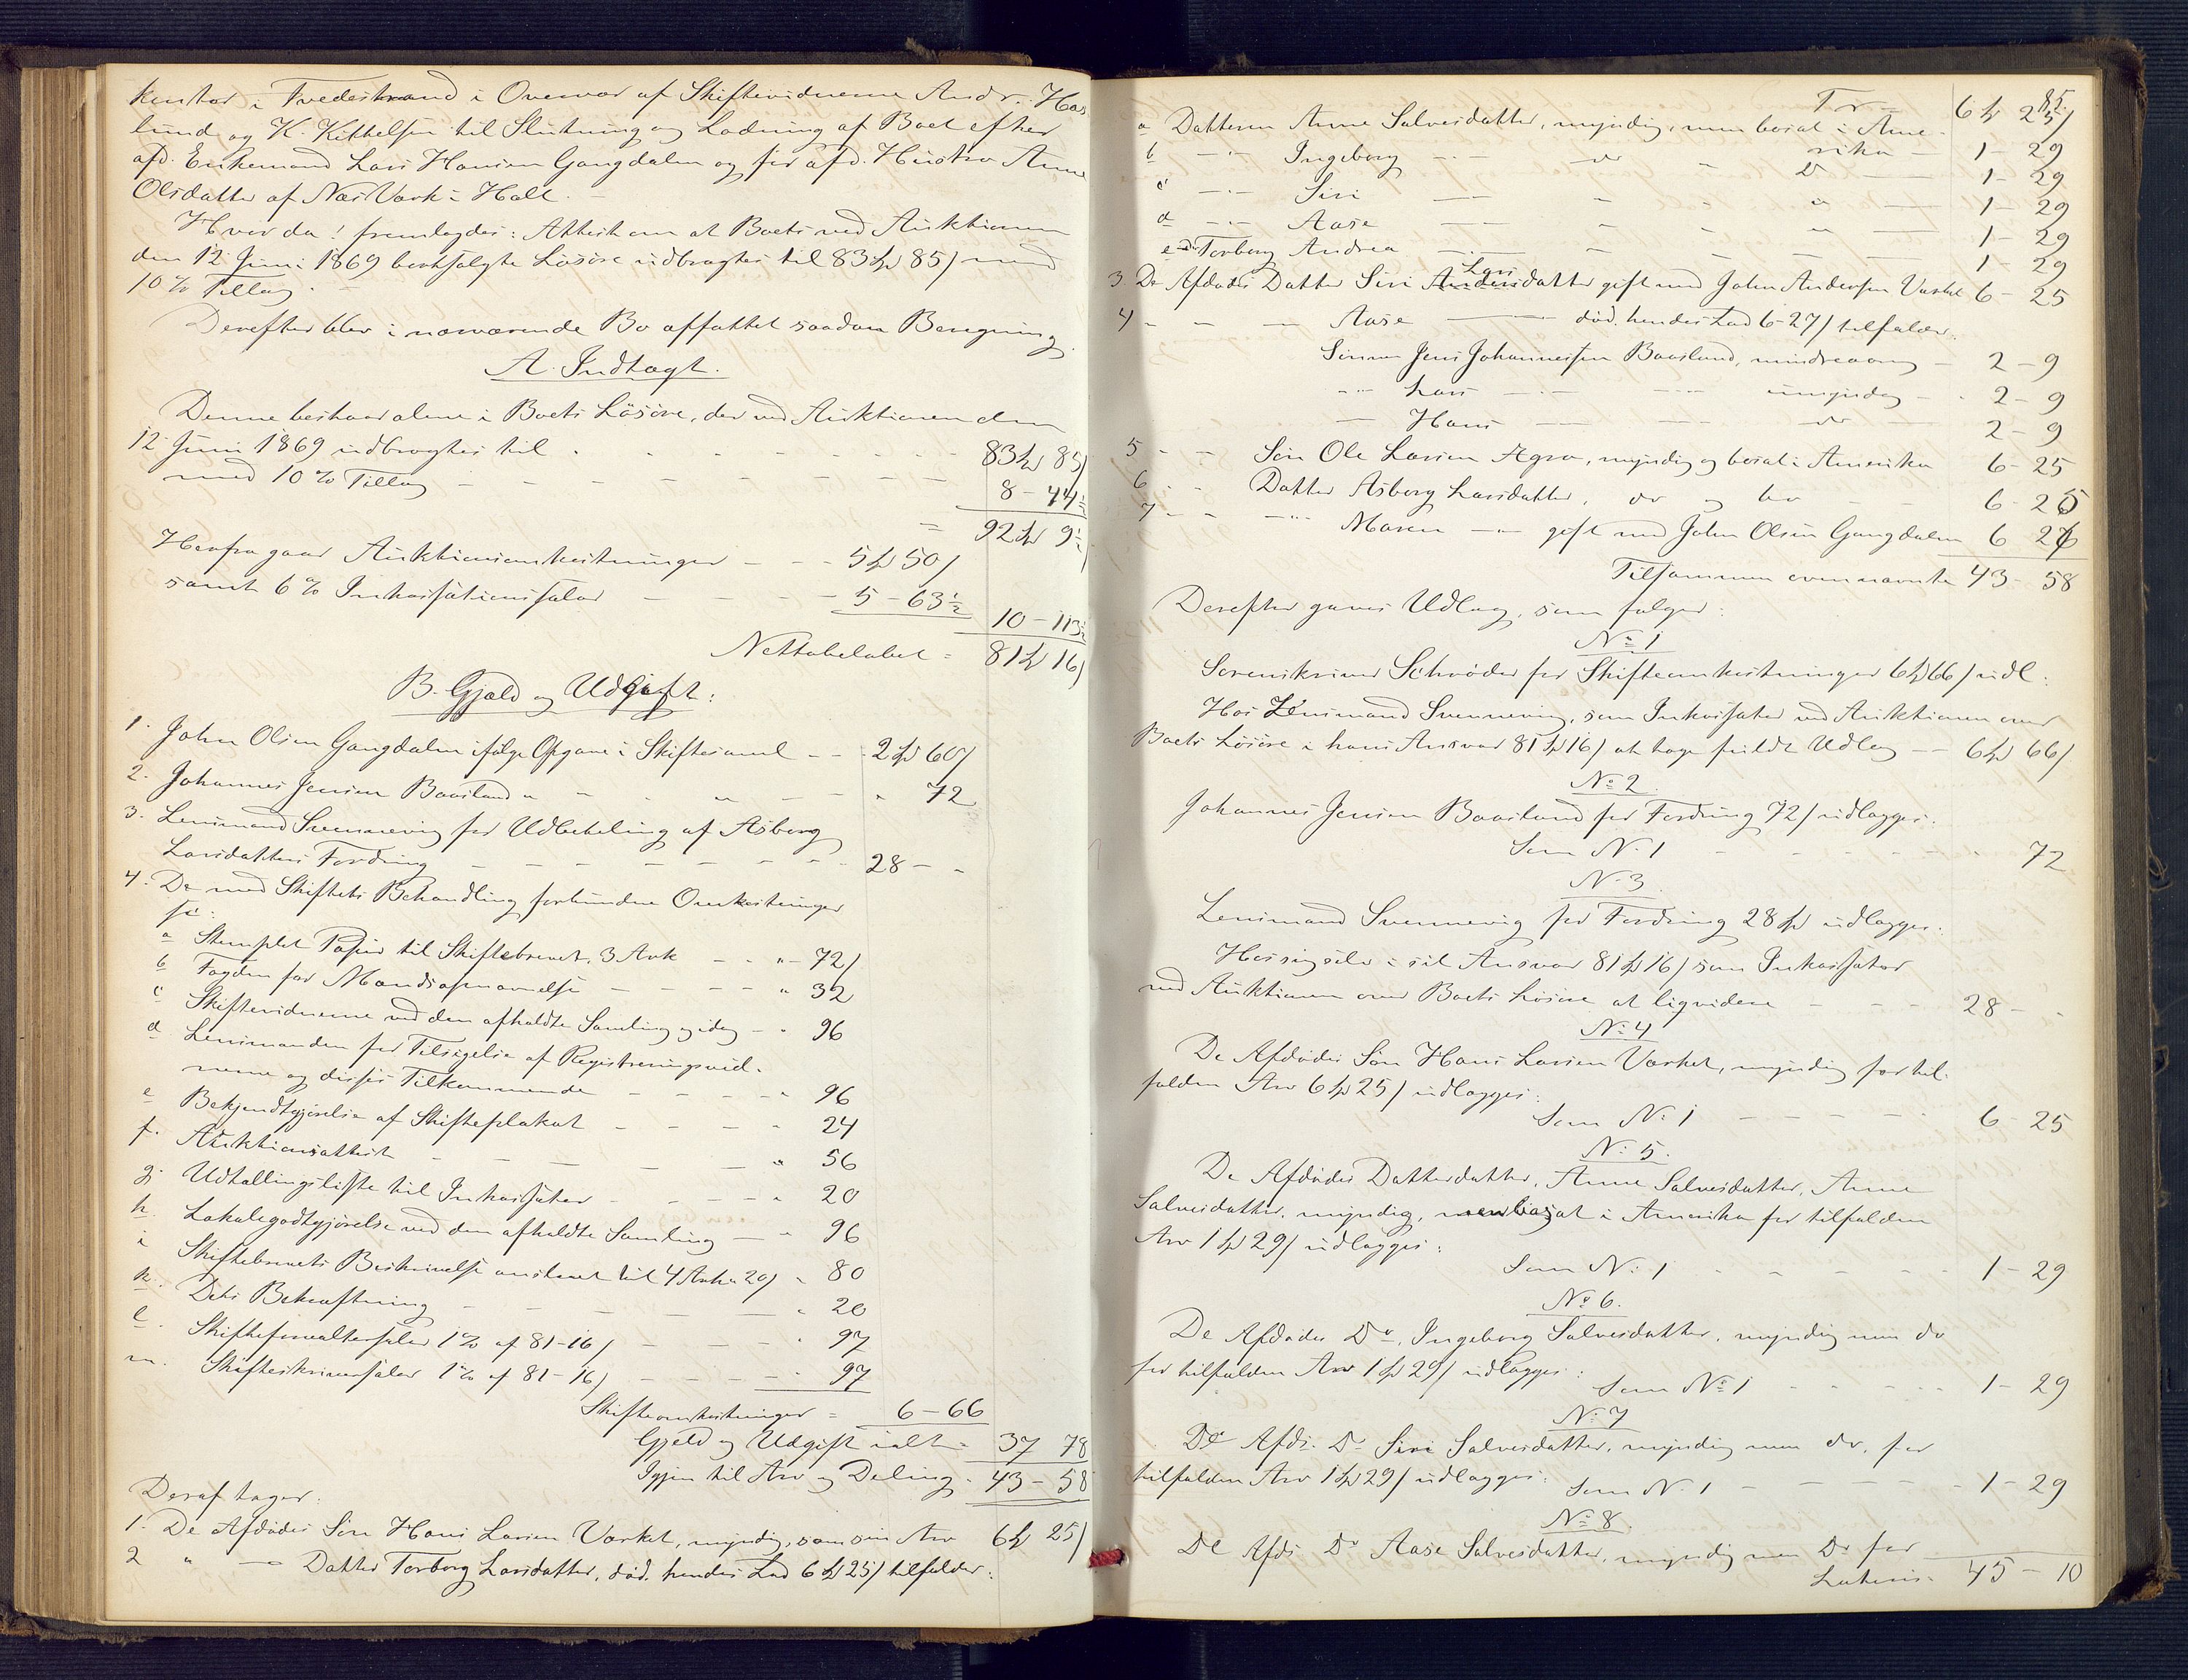 kontor i Tvedestrand i Overvær af Skiftevidnerne Andr. Has
lund og K. Kittelsen til Slutning og Lodning af Boet efter
afd. Enkemand Lars Hansen Gangdalen og før afd. Hustro Anne
Olsdatter af Næs Værk i Holt.
Hvorda! fremlagdes: Attest om at Boets ved Auktionen
den 12 Juni 1869 bortsolgte Løsøre udbragtes til 83 Spd 85 / med
10 % Tillæg.
Derefter blev i nærværende Bo affattet saadan Beregning
A. Indtægt.
Denne bestaar alene i Boets Løsøre, der ved Auktionen den
12 Juni 1869 udbragtes til - - - 83 Spd 85/
med 10 % Tillæg - - - 8 - 44½
= 92 Spd 9½
Herfra gaar Auktionsomkostninger - - - 5 Spd 50/
samt 6 % Inkassationssalær - - - 5 - 63½
10 - 113½
Nettobeløbet = 81 Spd 16/
B. Gjæld og Udgift:
1. John Olsen Gangdalen ifølge Opgave i Skiftesaml - - 2 Spd 60/
2. Johannes Jensen Baasland " - " - " 72
3. Lensmand Svennevig for Udbetaling af Asborg
Larsdatters Fordring - - - 28 - "
4. De med Skiftets Behandling forbundne Omkostninger
a Stemplet Papir til Skiftebrevet, 3 Ark - - " - 72/
b Fogden for Mændsopnævnelse - - - " 32
c Skiftevidnerne ved den afholdte Samling og idag - " 96
d Lensmanden for Tilsigelse af Registreringsvid-
nerne og disses Tilkommende - - - " 96
e Bekjendtgjørelse af Skifteplakat - - - " 24
f. Auktionsattest - - - " 56
g. Udtællingsliste til Inkassator - - - " 20
h. Lokalegodtgjørelse ved den afholdte Samling - " 96
i Skiftebrevets Beskrivelse anslaaet til 4 Ark a 20/ " 80
k. Dets Bekræftning - - - " 20
l. Skifteforvaltersalær 1 % af 81-16/ - - - " 97
m. Skifteskriversalær 1 % af 81-16/ - - - " 97
Skifteomkostninger = 6 - 66
Gjæld og Udgift ialt = 37 78
Igjen til Arv og Deling = 43 - 58
Deraf tager:
1. De Afdødes Søn Hans Larsen Værket, myndig, som sin Arv 6 Spd 25/
2 " - Datter Torborg Larsdatter, død. hendes Lod 6 Spd 25/ tilfalder:
85.
Tr - 6 Spd 25/
a Datteren Anne Salvesdatter, myndig, men bosat i Ame-
rika - 1 - 29
b - " - Ingeborg - " - do - Do - 1 - 29
c - " - Siri - - - " - 1 - 29
d - " - Aase - - - " - 1 - 29
e - " - Torborg Andrea - - - 1 - 29
Lars
3. De Afdødes Datter Siri Andersdatter gift med John Andersen Værket 6 - 25
4 - - - Aase - død. hendes Lod 6-27/ tilfalder
Sønnen Jens Johannessen Baasland, mindreaarig - 2 - 9
- " - Lars - " - umyndig - 2 - 9
- Hans - - do - 2 - 9
5 - - Søn Ole Larsen Agra, myndig og bosat i Amerika 6 - 25
6 - - Datter Asborg Larsdatter, do og do - 6 - 26
7 - - - " - Maren - " - gift med John Olsen Gangdalen 6 26
Tilsammen ovennævnte 43 - 58
Derefter gives Udlæg, som følger:
No 1
Sorenskriver Schrøder for Skifteomkostninger 6 Spd 66/ udl.
Hos Lensmand Svennevig, som Inkassator ved Auktionen over
Boets Løsøre i hans Ansvar 81 Spd 16/ at tage fuldt Udlæg - - 6 Spd 66/
No 2.
Johannes Jensen Baasland for Fordring 72/ udlægges:
Som No 1 - - - 72
No 3.
Lensmand Svennevig for Fordring 28 Spd udlægges:
Hos sig selv i sit Ansvar 81 Spd 16/ som Inkassator
ved Auktionen over Boets Løsøre at liqvidere - - - 28 - "
No 4
De Afdødes Søn Hans Larsen Værket, myndig for til-
falden Arv 6 Spd 25/ udlægges:
Som No 1 - - - 6 - 25
No 5.
De Afdødes Datterdatter, Anne Salvesdatter, Anne
Salvesdatter, myndig, men bosat i Amerika for tilfalden
Arv 1 Spd 29/ udlægges:
Som No 1 - - - 1 - 29
No 6.
De Afdødes Do, Ingeborg Salvesdatter, myndig men do
for tilfalden Arv 1 Spd 29/ udlægges:
Som No 1 - - - 1 - 29
No 7
De Afds. Do Siri Salvesdatter, myndig men do, for
tilfalden Arv 1 Spd 29/ udlægges:
Som No 1 - - - 1 - 29
No 8.
De Afds Do Aase Salvesdatter, myndig men Do for
Lateris 45 - 10